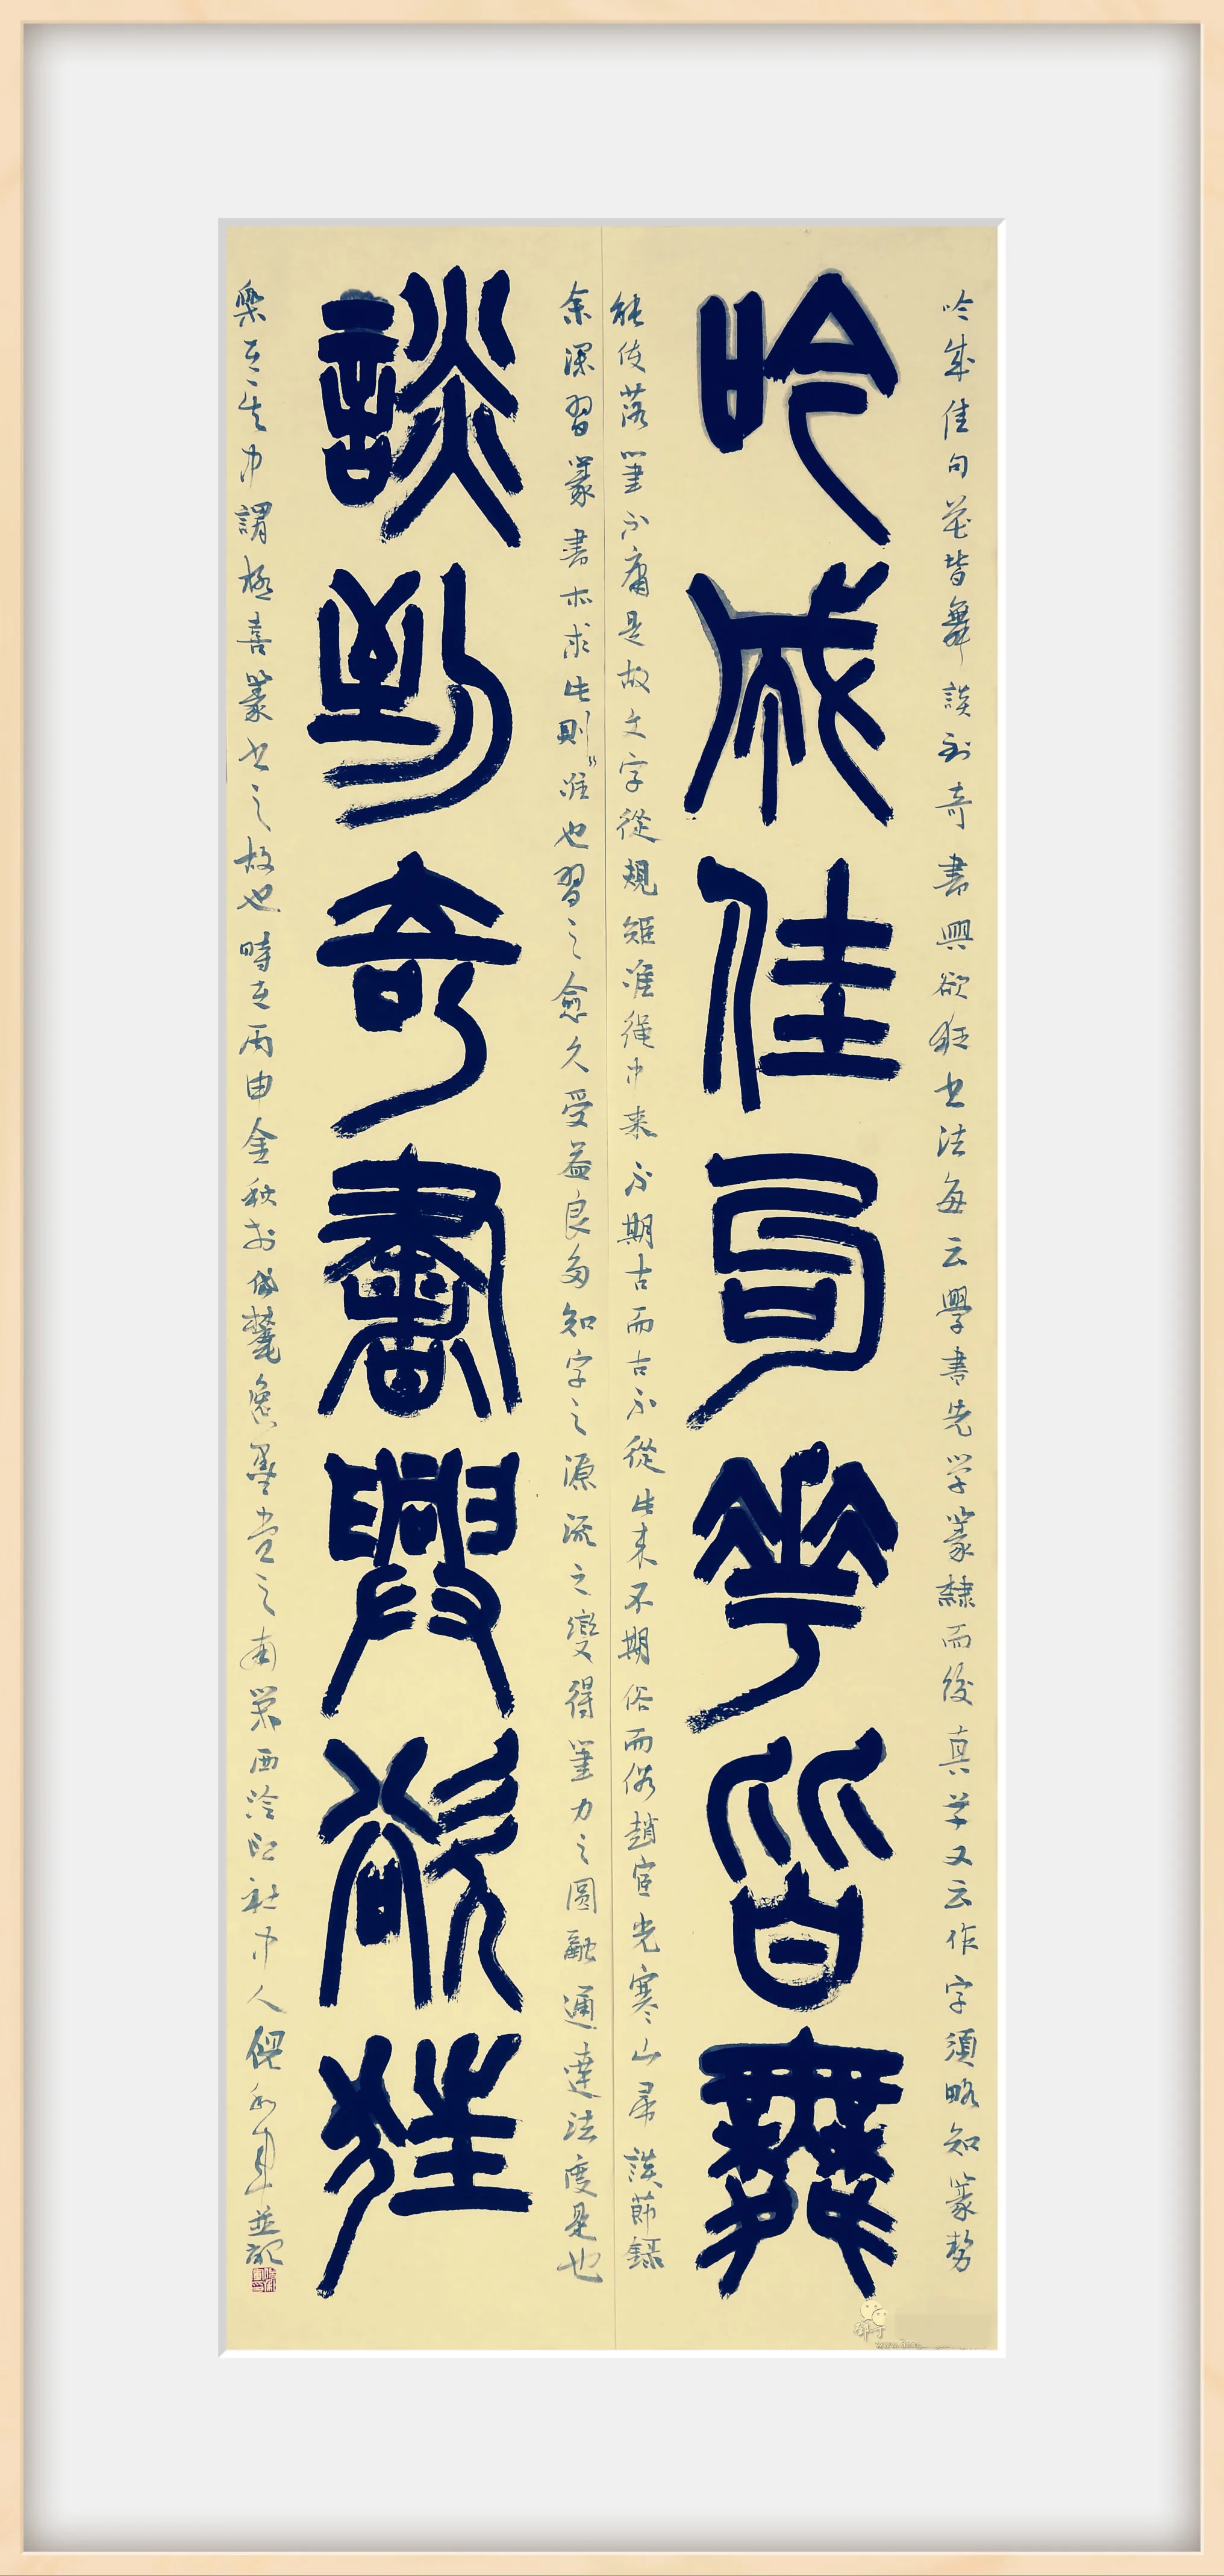 吟成佳句花皆舞談到奇書興欲狂书法每云學書先学篆隸而後真草又云作字須略知篆勢
吟成佳句華皆舞
能使落筆不庸是故文字從規矩准繩中来不期古而古不從此来不期俗而俗趙宦光寒山帚談節録
余深習篆書亦求此則唯也習之愈久受益良多知字之源流之變得筆力之圓融通達法度是也
談到奇書興欲狂
樂在其中謂極喜篆书之故也時在丙申金秋於岱麓逸墨堂之南策西泠印社中人倪和軍並記